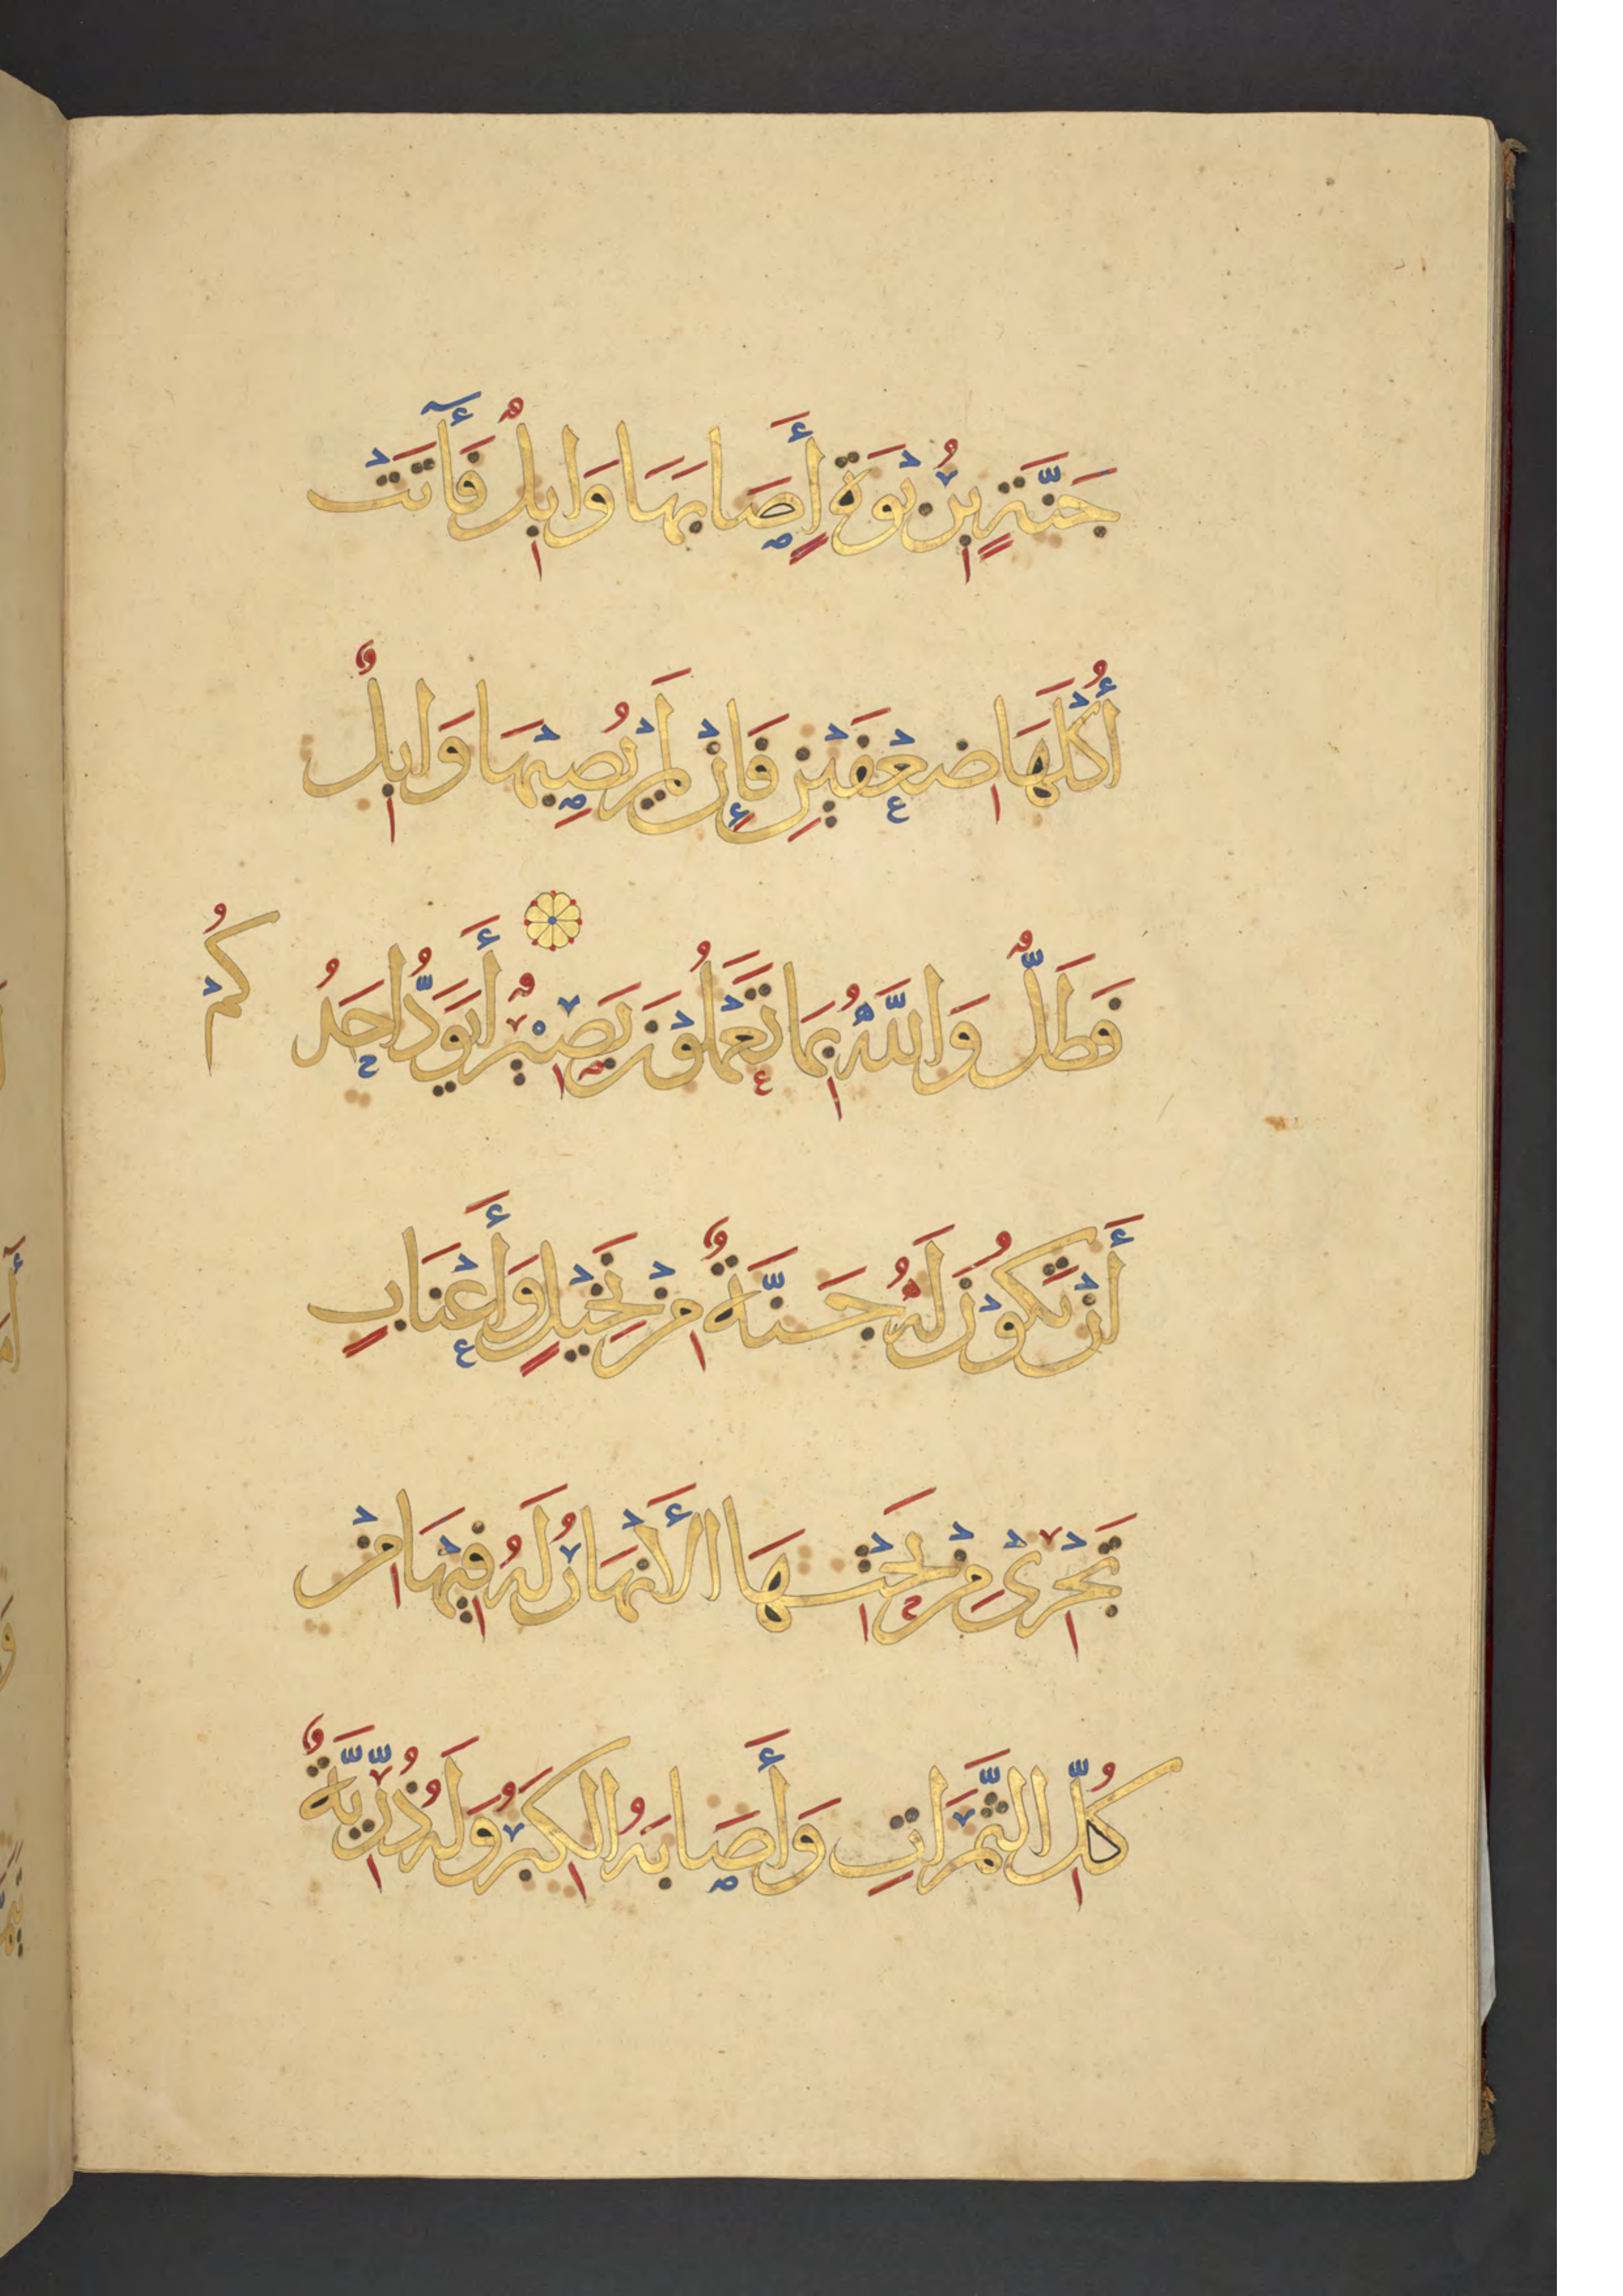 جَنَّةٍ بِرُبْوَةٍ أَصَابَهَا وَابِلٌ فَأٓتَتْ
أُكْلَهَا ضِعْفَيْنِ فَإِنْ لَمْ يُصِبْهَا وَابِلٌ
فَطَلٌّ وَاللَّهُ بِمَا تَعْمَلُونَ بَصِيْرٌ أَيَوَدُّ أَحَدُكُمْ
أَنْ تَكُوْنَ لَهُ جَنَّةٌ مِنْ نَخِيْلٍ وَأَعْنَابٍ
تَجْرِيْ مِنْ تَحْتِهَا الْأَنْهَارُ لَهُ فِيْهَا مِنْ
كُلِّ الثَّمَرَاتِ وَأَصَابَهُ الْكِبَرُ وَلَهُ ذُرِّيَّةٌ